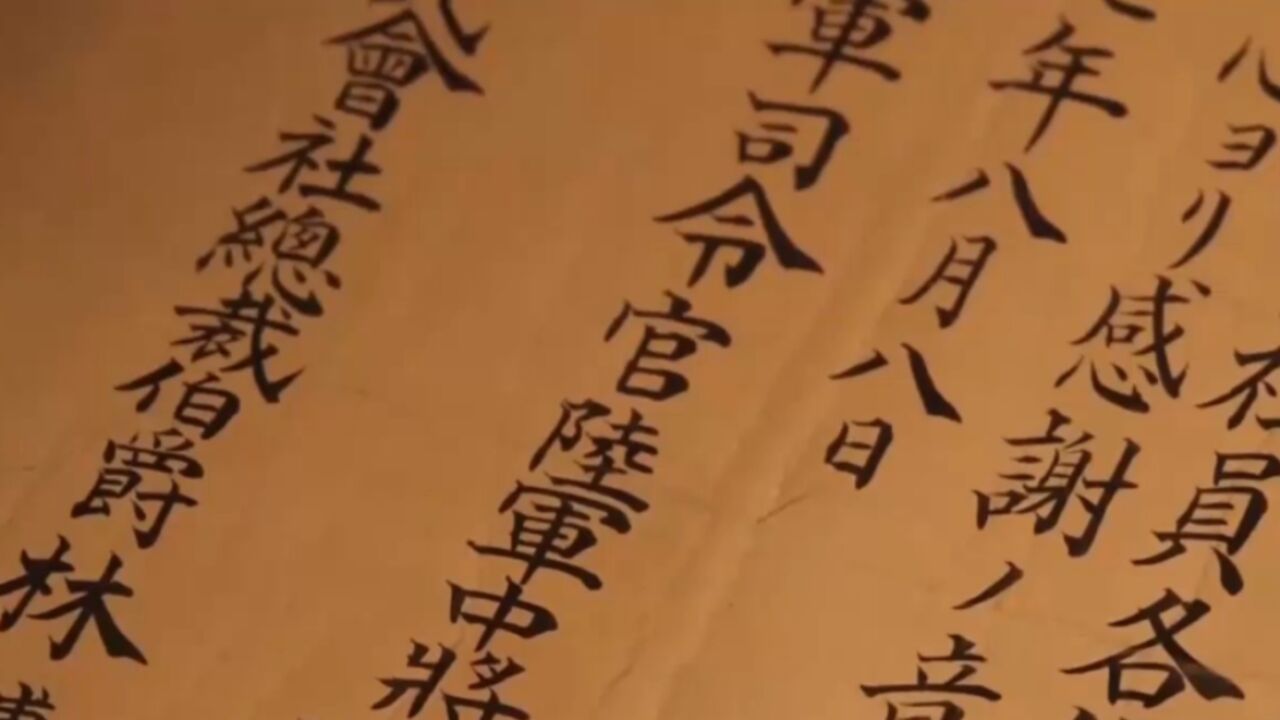 社員各
心ヨリ感謝ノ意
年八月八日
軍司令官陸軍中將
會社總裁伯爵林